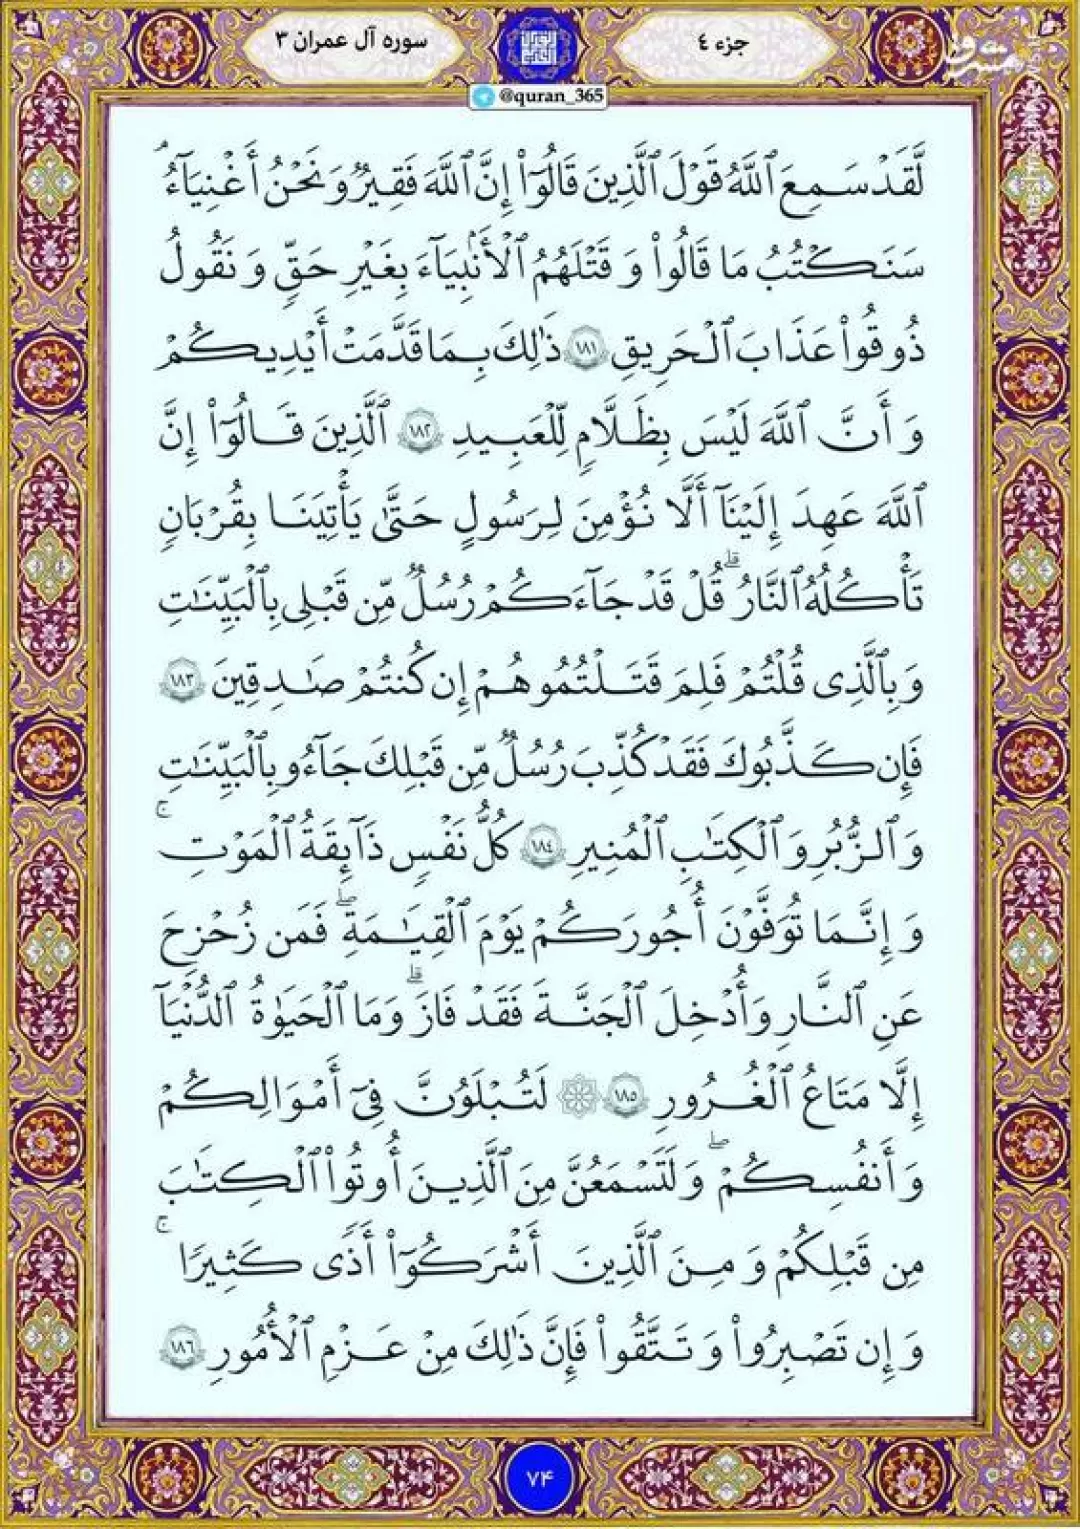 جزء ٤
سوره آل عمران ٣
@quran_365
مشرق
لَّقَدْ سَمِعَ ٱللَّهُ قَوْلَ ٱلَّذِينَ قَالُوٓا۟ إِنَّ ٱللَّهَ فَقِيرٌ وَنَحْنُ أَغْنِيَآءُ ۘ
سَنَكْتُبُ مَا قَالُوا۟ وَ قَتْلَهُمُ ٱلْأَنۢبِيَآءَ بِغَيْرِ حَقٍّ وَ نَقُولُ
ذُوقُوا۟ عَذَابَ ٱلْحَرِيقِ ١٨١ ذَٰلِكَ بِمَا قَدَّمَتْ أَيْدِيكُمْ
وَ أَنَّ ٱللَّهَ لَيْسَ بِظَلَّامٍ لِّلْعَبِيدِ ١٨٢ ٱلَّذِينَ قَالُوٓا۟ إِنَّ
ٱللَّهَ عَهِدَ إِلَيْنَآ أَلَّا نُؤْمِنَ لِرَسُولٍ حَتَّىٰ يَأْتِيَنَا بِقُرْبَانٍ
تَأْكُلُهُ ٱلنَّارُ ۗ قُلْ قَدْ جَآءَكُمْ رُسُلٌ مِّن قَبْلِى بِٱلْبَيِّنَٰتِ
وَ بِٱلَّذِى قُلْتُمْ فَلِمَ قَتَلْتُمُوهُمْ إِن كُنتُمْ صَٰدِقِينَ ١٨٣
فَإِن كَذَّبُوكَ فَقَدْ كُذِّبَ رُسُلٌ مِّن قَبْلِكَ جَآءُو بِٱلْبَيِّنَٰتِ
وَ ٱلزُّبُرِ وَ ٱلْكِتَٰبِ ٱلْمُنِيرِ ١٨٤ كُلُّ نَفْسٍ ذَآئِقَةُ ٱلْمَوْتِ ۚ
وَ إِنَّمَا تُوَفَّوْنَ أُجُورَكُمْ يَوْمَ ٱلْقِيَٰمَةِ ۖ فَمَن زُحْزِحَ
عَنِ ٱلنَّارِ وَ أُدْخِلَ ٱلْجَنَّةَ فَقَدْ فَازَ ۗ وَمَا ٱلْحَيَوٰةُ ٱلدُّنْيَآ
إِلَّا مَتَاعُ ٱلْغُرُورِ ١٨٥ ۞ لَتُبْلَوُنَّ فِىٓ أَمْوَالِكُمْ
وَ أَنفُسِكُمْ ۖ وَ لَتَسْمَعُنَّ مِنَ ٱلَّذِينَ أُوتُوا۟ ٱلْكِتَٰبَ
مِن قَبْلِكُمْ وَ مِنَ ٱلَّذِينَ أَشْرَكُوٓا۟ أَذًى كَثِيرًا ۚ
وَ إِن تَصْبِرُوا۟ وَ تَتَّقُوا۟ فَإِنَّ ذَٰلِكَ مِنْ عَزْمِ ٱلْأُمُورِ ١٨٦
٧۴